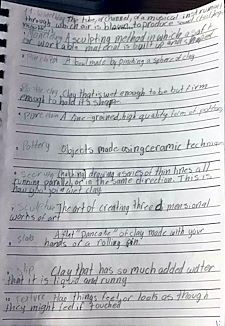 the tube, or channel, of a musical instrument
through which air is blown, to produce sound
A sculpting method in which a soft
or workable material is built up and shaped
A bowl made by pinching a sphere of clay
Clay that is wet enough to be but firm
enough to hold its shape
A fine-grained, high quality form of pottery
Pottery Objects made using ceramic techniques
drawing a series of thin lines all
running parallel, or in the same direction. This is
Sculpture The art of creating three dimensional
works of art
slab A flat "pancake" of clay made with your
hands or a rolling pin.
slip Clay that has so much added water
that it is liquid and runny
texture How things feel, or look as though
they might feel if touched